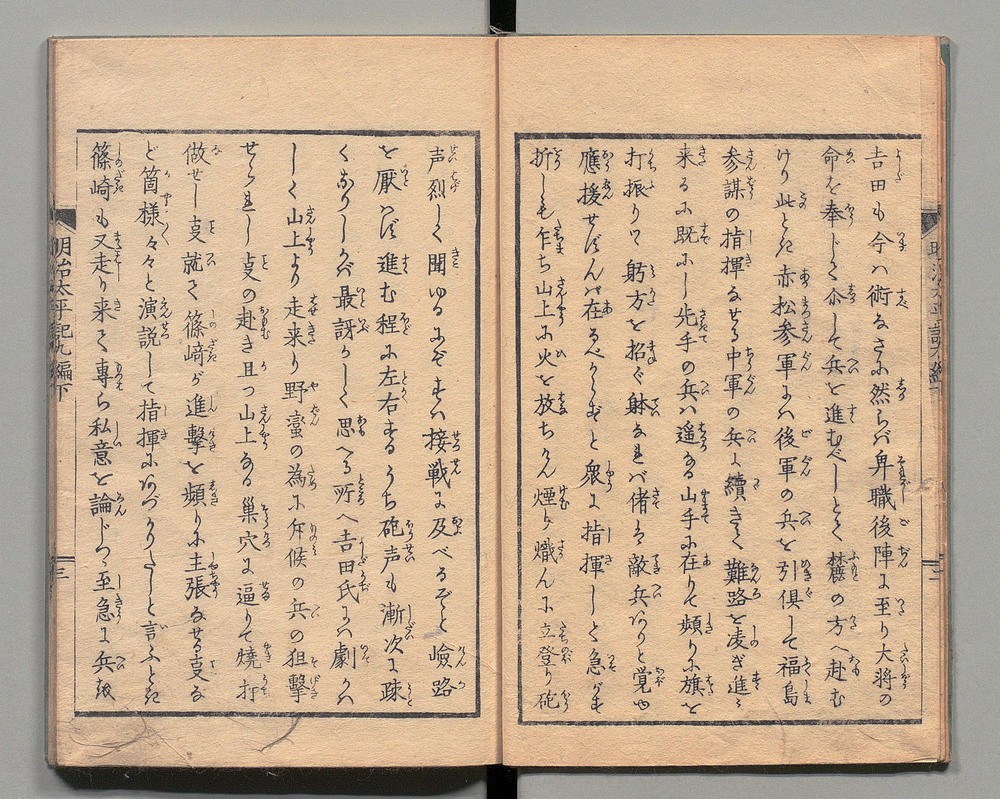 吉田も今ハ術なさに然らバ卑職後陣に至り大将の
命を奉じて亦して兵を進むべしとて麓の方へ赴む
けり此とき赤松参軍にハ後軍の兵を引倶して福島
参謀の指揮なせる中軍の兵に續きて難路を凌ぎ進ミ
来るに既にし先手の兵ハ遥なる山手に在りて頻りに旗を
打振りつゝ躬方を招ぐ躰なれバ偖ハ敵兵ありと覚ゆ
應援せずんバ在るべからずと衆に指揮して急がす
折しも乍ち山上に火を放ちけん煙り熾んに立登り砲
声烈しく聞ゆるにぞすハ接戦に及べるぞと嶮路
を厭はず進む程に左右するうち砲声も漸次に疎
くなりしかバ最訝かしく思へる所へ吉田氏にハ劇は
しく山上より走来り野蛮の為に斥候の兵の狙撃
せられし支の赴き且つ山上なる巣穴に逼りて焼打
做せし支就て篠﨑が進撃を頻りに主張なせる支な
ど箇様々々と演説して指揮にあづかりたしと言ふとき
篠崎も又走り来て専ら私意を論じつゝ至急に兵を
明治太平記九編下
三